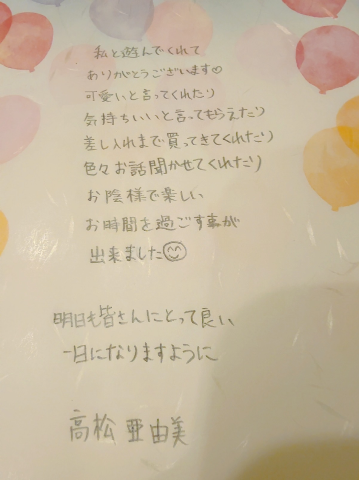 私と遊んでくれて
ありがとうございます♡
可愛いと言ってくれたり
気持ちいいと言ってもらえたり
差し入れまで買ってきてくれたり
色々お話聞かせてくれたり
お陰様で楽しい
お時間を過ごす事が
出来ました😊
明日も皆さんにとって良い
一日になりますように
高松亜由美